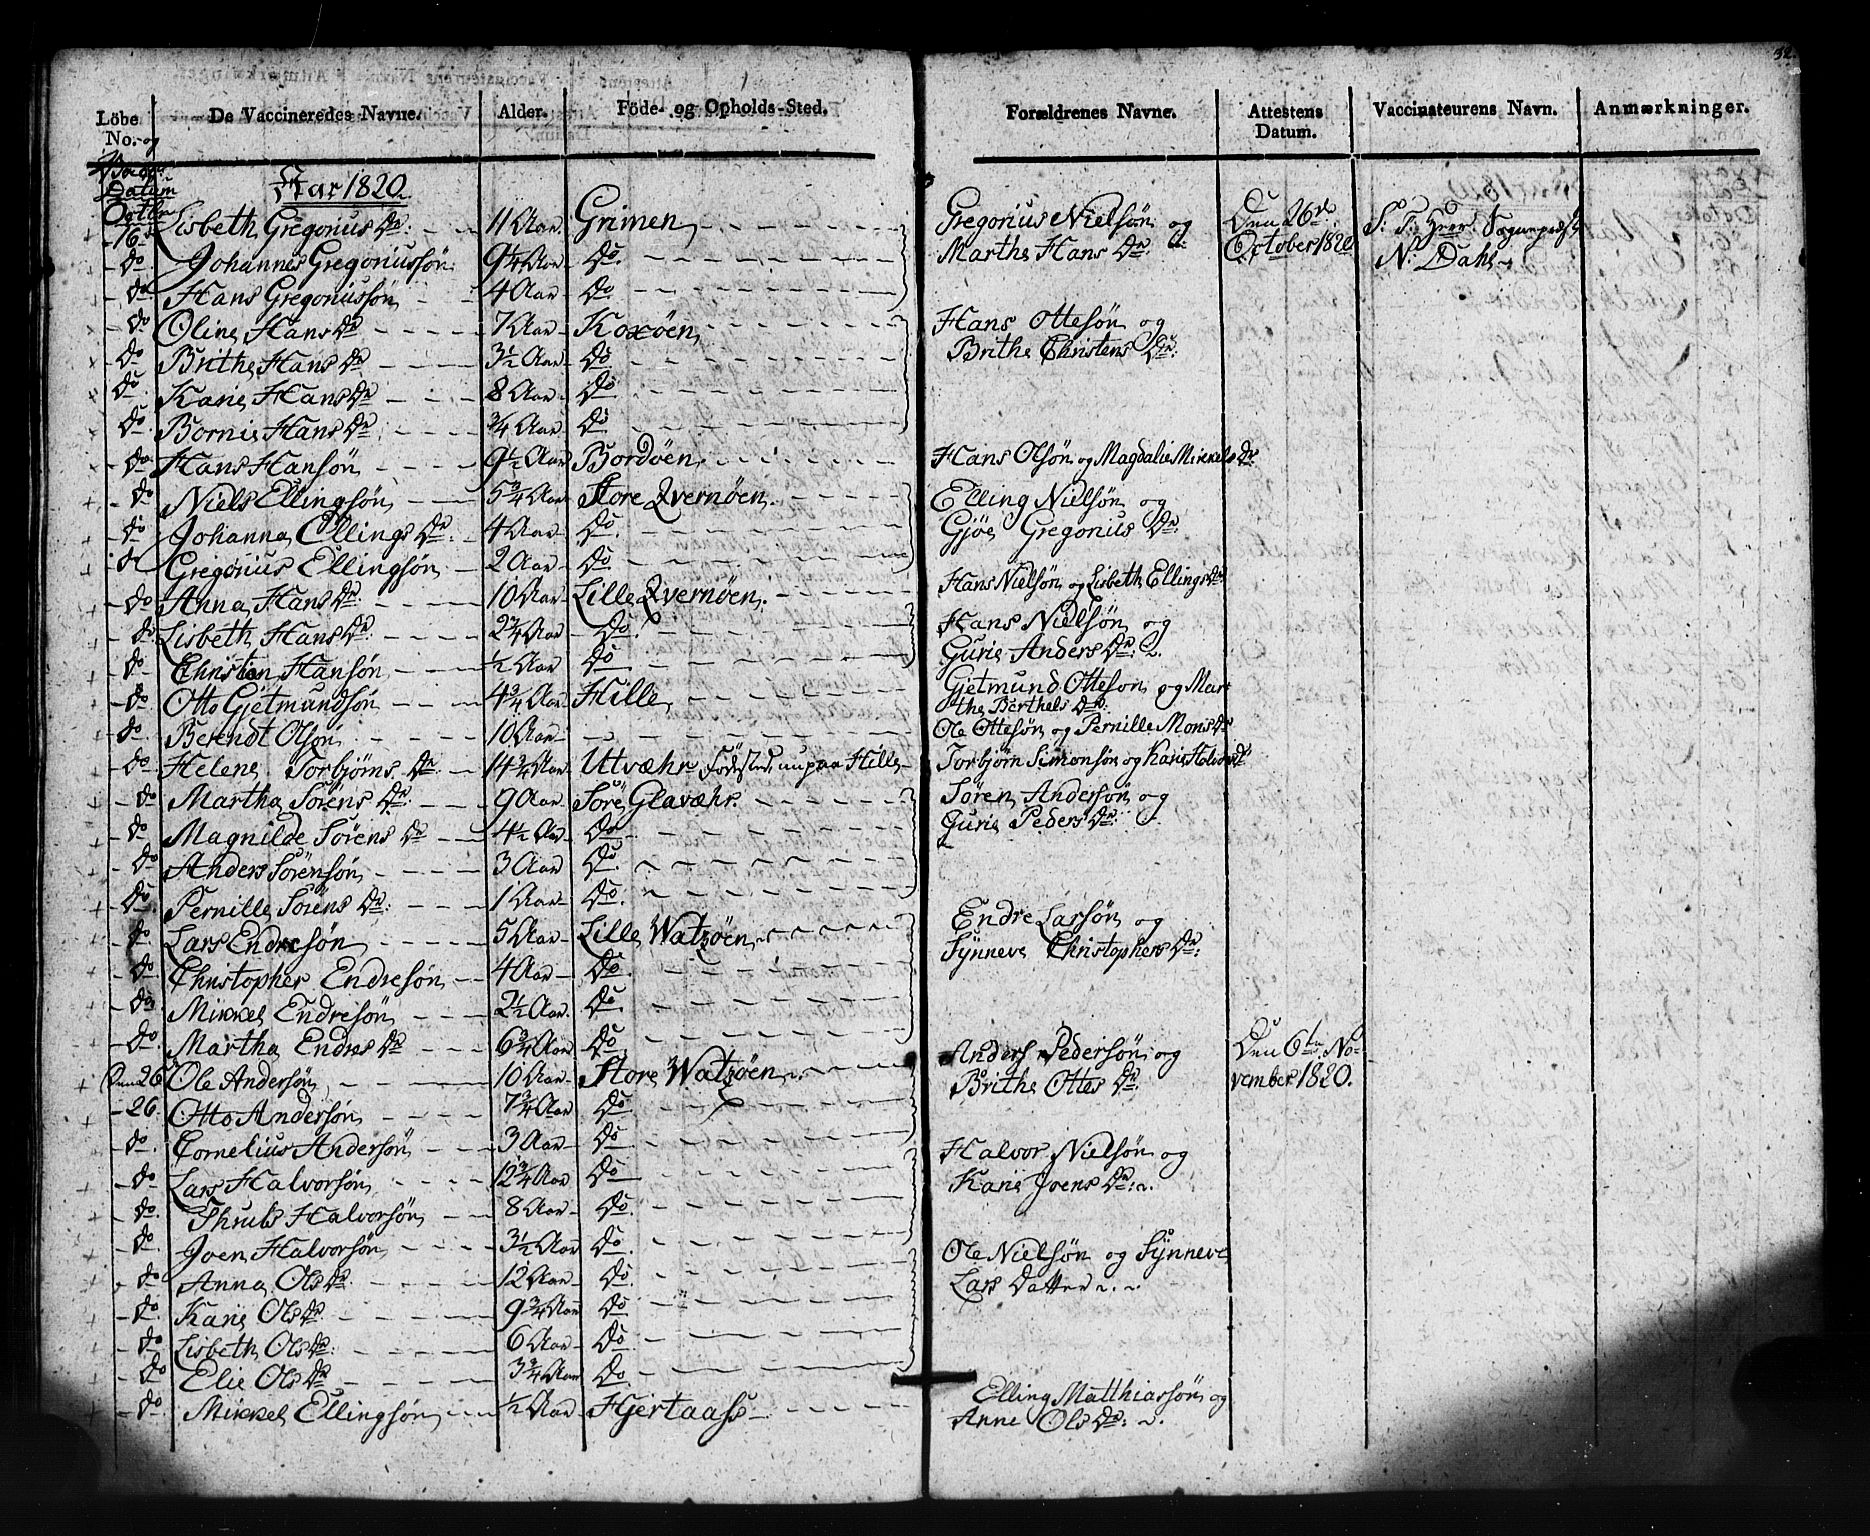 32.
Löbe No. og Datum | De Vaccineredes Navne. | Alder. | Föde- og Opholds-Sted. | Forældrenes Navne. | Attestens Datum. | Vaccinateurens Navn. | Anmærkninger.
Aar 1820
Octbr 16 | Lisbeth Gregorius Dr: | 11 Aar | Grimen | Gregorius Nielsön og | Den 26de | S. T. Herr Sognepræst
do | Johannes Gregoriussön | 9 1/4 Aar | Do | Marthe Hans Dr: | October 1820 | N. Dahl
do | Hans Gregoriussön | 4 Aar | Do
do | Oline Hans Dr | 7 Aar | Koxöen | Hans Ottesön og
do | Brithe Hans Dr | 3 1/2 Aar | Do | Brithe Christens Dr:
do | Karie Hans Dr | 8 Aar | Do
do | Bornie Hans Dr | 3/4 Aar | Do
do | Hans Hansön | 9 1/2 Aar | Bordöen | Hans Olsön og Magdalie Mikkels Dr
do | Niels Ellingsön | 5 3/4 Aar | Store Qvernöen | Elling Nielsön og
do | Johanna Ellings Dr: | 4 Aar | Do | Gjöe Gregorius Dr:
do | Gregorius Ellingsön | 2 Aar | Do
do | Anna Hans Dr: | 10 Aar | Lille Qvernöen | Hans Nielsön og Lisbeth Ellings Dr
do | Lisbeth Hans Dr: | 2 3/4 Aar | Do | Hans Nielsön og
do | Christen Hansön | 1/2 Aar | Do | Gurie Anders Dr:
do | Otto Gjetmundsön | 4 3/4 Aar | Hille | Gjetmund Otteson og Marthe Berthels Dr:
do | Berendt Olson | 10 Aar | | Ole Ottesön og Pernille Mons Dr
do | Helene Torbjörns Dr: | 14 3/4 Aar | Utvæhr Födested, nu paa Hille | Torbjörn Simonsön og Karie Halvors Dr
do | Martha Sörens Dr: | 9 Aar | Söre Glavæhr | Sören Andersön og
do | Magnilde Sörens Dr | 4 1/2 Aar | Do | Gurie Peders Dr:
do | Anders Sörensön | 3 Aar | Do
do | Pernille Sörens Dr: | 1 Aar | Do
do | Lars Endresön | 5 Aar | Lille Watzöen | Endre Larsön og
do | Christopher Endresön | 4 Aar | Do | Synneve Christophers Dr:
do | Mikkel Endresön | 2 1/2 Aar | Do
do | Martha Endres Dr | 6 3/4 Aar | Do
Den 26 | Ole Andersön | 10 Aar | Store Watzöen | Anders Pedersön og | Den 6te No-
26 | Otto Andersön | 7 3/4 Aar | Do | Brithe Ottes Dr | vember 1820.
do | Cornelius Andersön | 3 Aar | Do
do | Lars Halvorsön | 12 3/4 Aar | Do | Halvor Nielsön og
do | Thruls Halvorsön | 8 Aar | Do | Karie Joens Dr:
do | Joen Halvorsön | 3 1/2 Aar | Do
do | Anna Ols Dr | 12 Aar | Do | Ole Nielsön og Synneve
do | Karie Ols Dr | 9 3/4 Aar | Do | Lars Datter
do | Lisbeth Ols Dr: | 6 Aar | Do
do | Elie Ols Dr | 3 3/4 Aar | Do
do | Mikkel Ellingsön | 1/2 Aar | Hjertaass | Elling Matthiassön og
Anne Ols Dr: